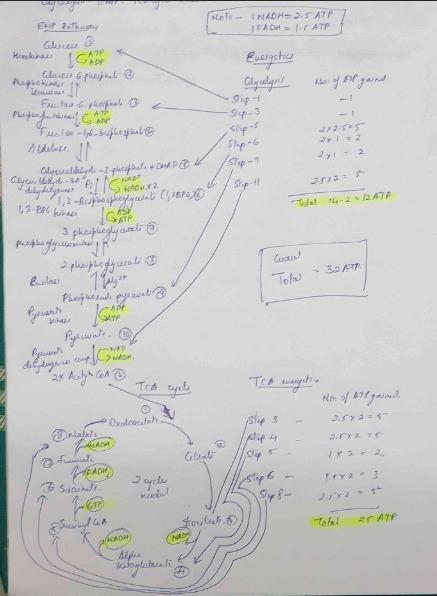 Note - 1 NADH = 2.5 ATP
1 FADH = 1.5 ATP
EMP Pathway
Glucose ①
Hexokinase
ATP
ADP
Glucose 6 phosphate ②
isomerase
Fructose-6-phosphate ③
ATP
ADP
Fructose-1,6-bisphosphate ④
Aldolase
Glyceraldehyde-3-phosphate + DHAP ⑤
Pi
NAD+
NADH x 2
1,3-Bisphosphoglycerate (1,3BPG) ⑥
1,3-BPG kinase
ADP
ATP
3 phosphoglycerate ⑦
2 phosphoglycerate ⑧
Enolase
Mg2+
Phosphoenol pyruvate ⑨
Pyruvate kinase
ADP
ATP
Pyruvate ⑩
Pyruvate dehydrogenase comp
NAD
NADH
2x Acetyl CoA
Energetics
Glycolysis
No. of ATP gained
Step-1 -1
Step-3 -1
Step-5 2x2.5=5
Step-6 2x1=2
Step-9 2x1=2
Step-11 2.5x2=5
Total 14-2=12ATP
Total = 32ATP
TCA cycle
①
Oxaloacetate
Citrate ②
Isocitrate ③
NADH
Alpha Ketoglutarate ④
NADH
Succinyl CoA
GTP
Succinate
FADH2
Fumarate
NADH
Malate
2 cycle
TCA energetics
No. of ATP gained
Step 3 - 2.5x2=5
Step 4 - 2.5x2=5
Step 5 - 1x2=2
Step 6 - 1.5x2=3
Step 8 - 2.5x2=5
Total 25 ATP